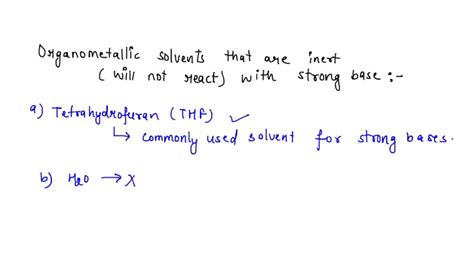 Organometallic solvents that are inert
( will not react) with strong base :-
a) Tetrahydrofuran (THF) ✓
↳ commonly used solvent for strong bases.
b) H2O → X